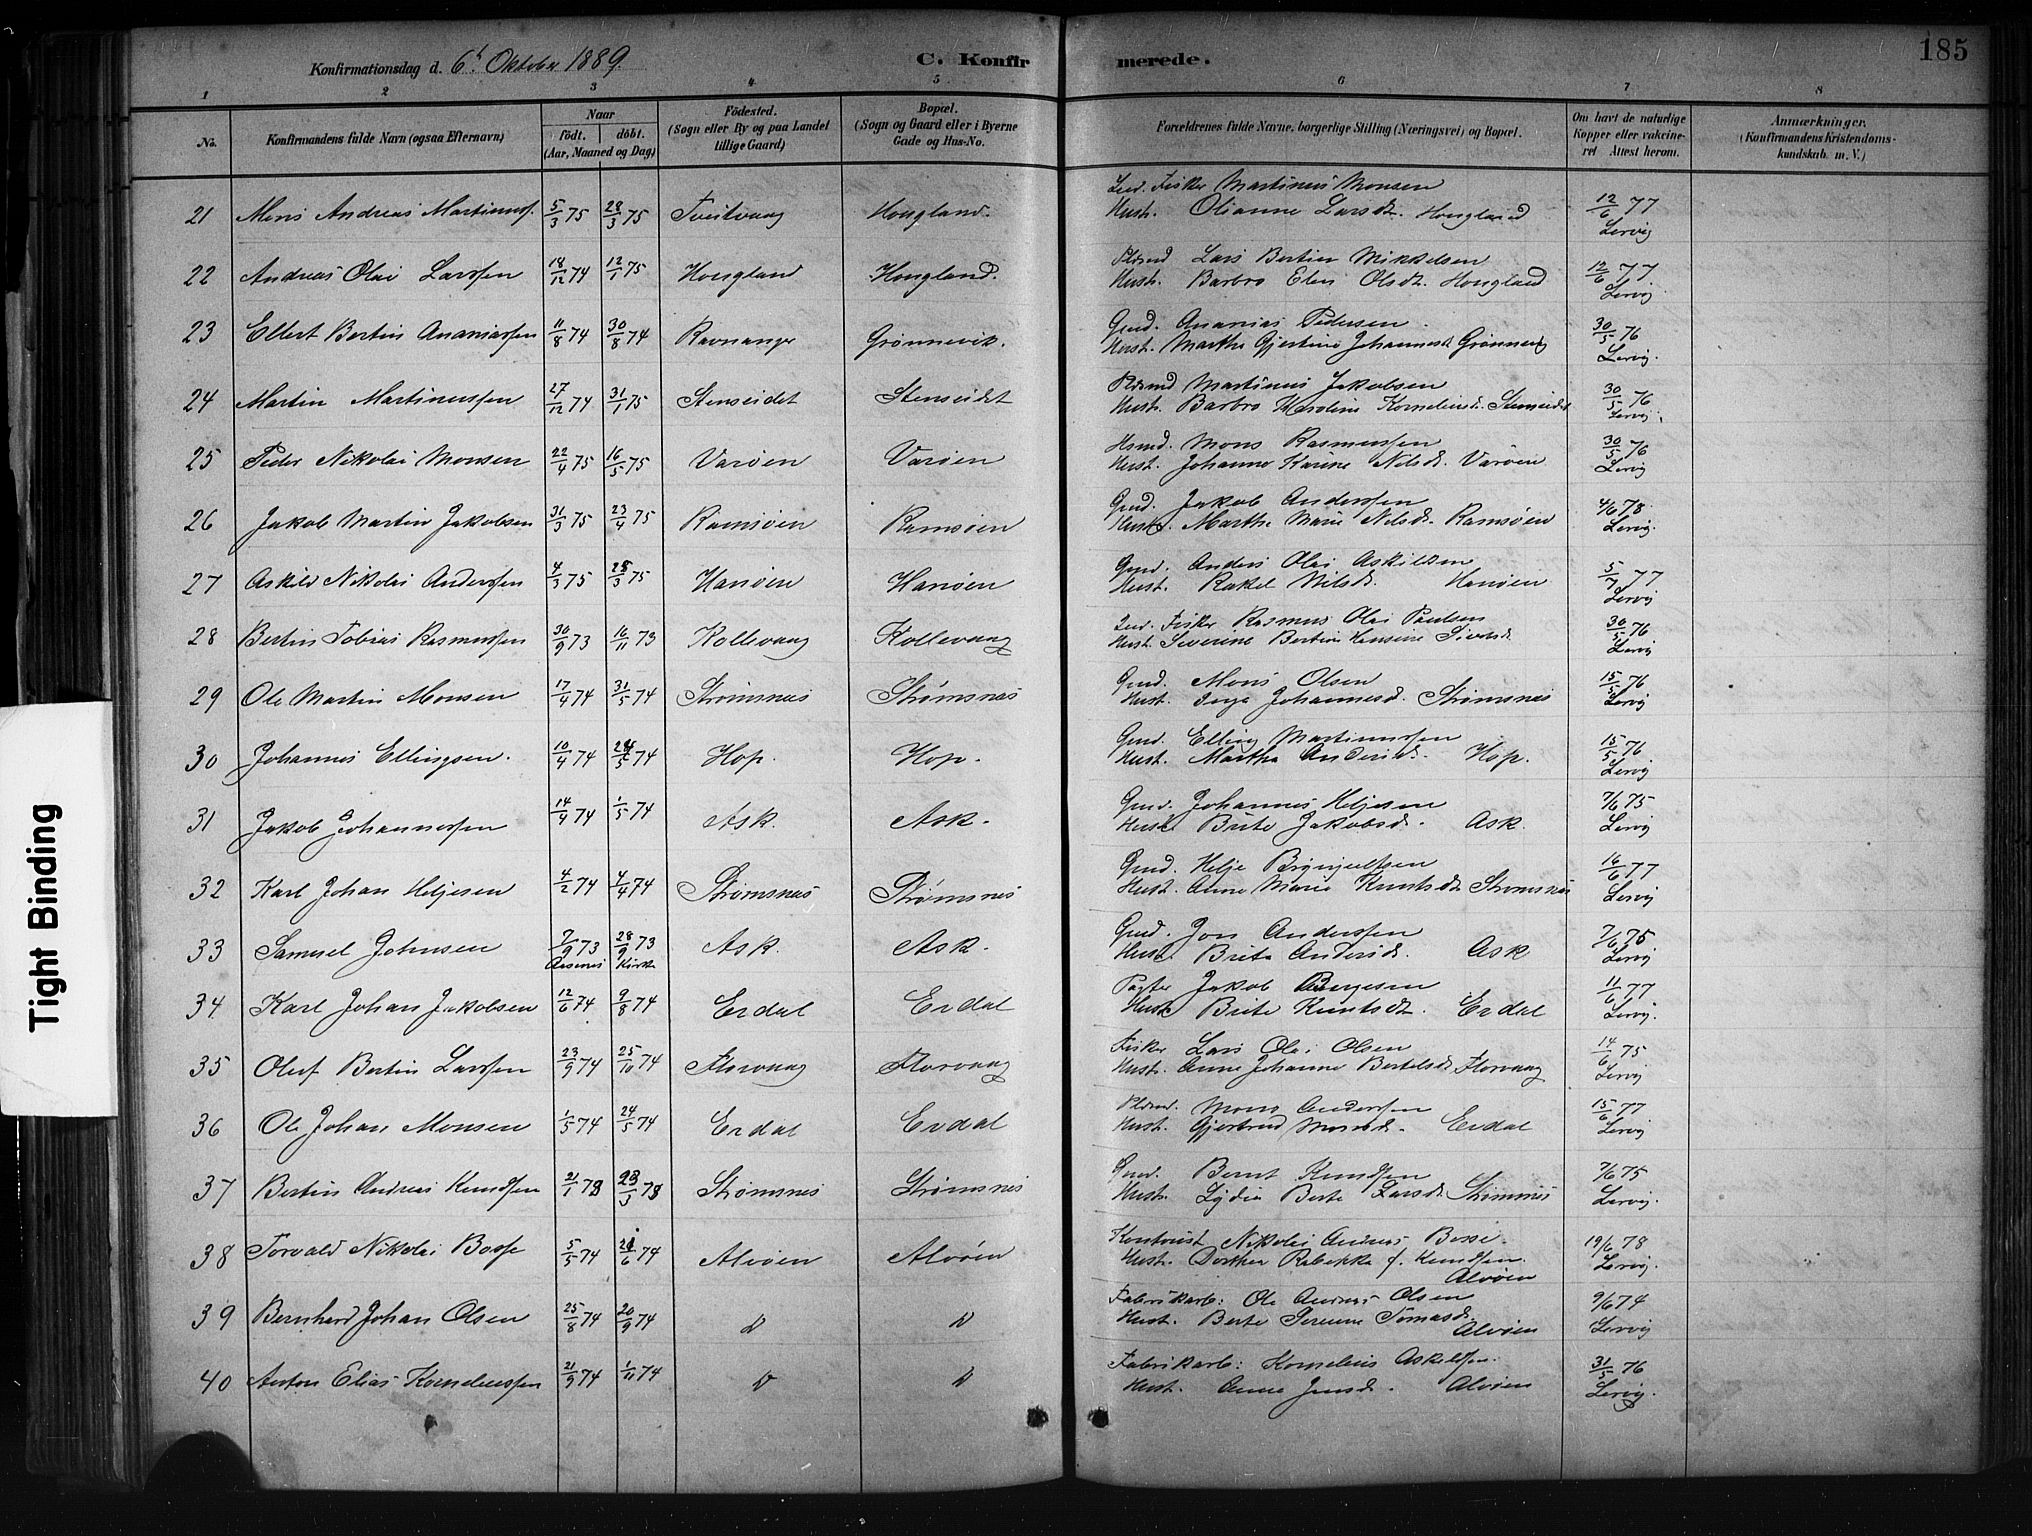 185
Konfirmationsdag d. 6t Oktober 1889.
C. Konfirmerede.
1 2 3 4 5 6 7 8
No.
Konfirmandens fulde Navn (ogsaa Efternavn)
Naar
födt. döbt.
(Aar, Maaned og Dag)
Födested.
(Sogn eller By og paa Landet
tillige Gaard)
Bopæl.
(Sogn og Gaard eller i Byerne
Gade og Hus-No.
Forældrenes fulde Navne, borgerlige Stilling (Næringsvei) og Bopæl.
Om havt de naturlige
Kopper eller vakcine-
ret Attest herom.
Anmærkninger.
(Konfirmandens Kristendoms-
kundskab m. V.)
21 Mons Andreas Martinuss. 5/3 75 28/3 75 Tveitvaag Hougland. Ind. Fisker Martinus Monsen 12/6 77
Hust. Olianne Larsdt. Hougland Lervig
22 Andreas Olai Larssen 18/12 74 12/1 75 Hougland Hougland. Pldsmd Lars Bertin Mikkelsen 12/6 77.
Hust. Barbro Elen Olsdt. Hougland Lervig.
23 Ellert Bertin Ananiassen 11/8 74 30/8 74 Ravnanger Grønnevik. Gmd. Ananias Pedersen 30/5 76
Hust. Martha Gjertine Johannesd. Lervig.
24 Martin Martinussen 27/12 74 31/1 75 Stenseidet Stenseidet Pldsmd Martinus Jakobsen 30/5 76
Hust. Barbro Karoline Korneliusd. Stenseidet Lervig.
25 Peder Nikolai Monsen 22/4 75 16/5 75 Varøen Varøen Hsmd. Mons Rasmussen 30/5 76
Hust. Johanne Karine Nilsdt. Varøen Lervig
26 Jakob Martin Jakobsen 31/3 75 23/4 75 Ramsøen Ramsøen Gmd. Jakob Anderssen 4/6 78.
Hust. Martha Marie Nilsdt. Ramsøen Lervig.
27 Askild Nikolai Anderssen 4/3 75 28/3 75 Hanøen Hanøen Gmd. Anders Olai Askildsen 5/7 77
Hust. Rakel Nilsdt. Hanøen Lervig
28 Bertin Tobias Rasmussen 30/9 73 16/11 73 Kollevaag Kollevaag Ind. Fisker Rasmus Olai Paulsen 30/5 76
Hust. Severine Bertine Hansine Lervig
29 Ole Martin Monsen 17/4 74 31/5 74 Strømsnes Strømsnes Gmd. Mons Olsen 15/5 76
Hust. Inga Johannesd. Strømsnes Lervig
30 Johannes Ellingsen. 10/4 74 74 Hop. Hop. Gmd. Elling Martinussen 15/5 76
Hust. Martha Andersd. Hop. Lervig
31 Jakob Johannessen 14/4 74 1/5 74 Ask. Ask. Gmd. Johannes Heljesen 7/6 75
Hust. Brite Jakobsd. Ask. Lervig
32 Karl Johan Heljesen 4/2 74 4/4 74 Strømsnes Strømsnes Gmd. Helje Brynjulfsen 16/6 77
Hust. Anne Marie Knutsdt. Strømsnes Lervig
33 Samuel Johnsen 7/9 73 28/9 73 Ask. Ask. Gmd. Jon Anderssen 7/6 75
Kirke Hust. Brita Andersd. Ask Lervig
34 Karl Johan Jakobsen 12/6 74 9/8 74 Erdal Erdal Jakob Børgesen 11/6 77
Hust. Brite Knutsdt. Erdal Lervig.
35 Oluf Bertin Larssen 23/9 74 25/10 74 Florvaag Florvaag Fisker Lars Olai Olsen 14/6 75
Hust. Anne Johanne Bertelsd. Florvaag Lervig
36 Ole Johan Monsen 1/5 74 24/5 74 Erdal Erdal Pldsmd. Mons Anderssen 15/6 77
Hust. Gjertrud Monsd. Erdal Lervig
37 Bertin Andreas Knudsen 2/1 73 23/3 73 Strømsnes Strømsnes Gmd. Bernt Knudsen 7/6 75
Hust. Lydia Berte Larsdt. Strømsnes Lervig.
38 Torvald Nikolai Bosse 5/5 74 21/6 74 Alvøen Alvøen Kontorist Nikolai Andreas Bosse. 19/6 78
Hust. Dorthea Rebekka f. Knudsen. Lervig.
Alvøen
39 Bernhard Johan Olsen 25/8 74 20/9 74 D D Fabrikarb: Ole Andreas Olsen 9/6 74
Hust. Berte Serene Tomasd. Lervig
Alvøen
40 Anton Elias Korneliussen 21/9 74 1/11 74 D D Fabrikarb: Kornelius Askeldsen. 31/5 76
Hust. Anne Jensd. Alvøen Lervig.
Tight Binding